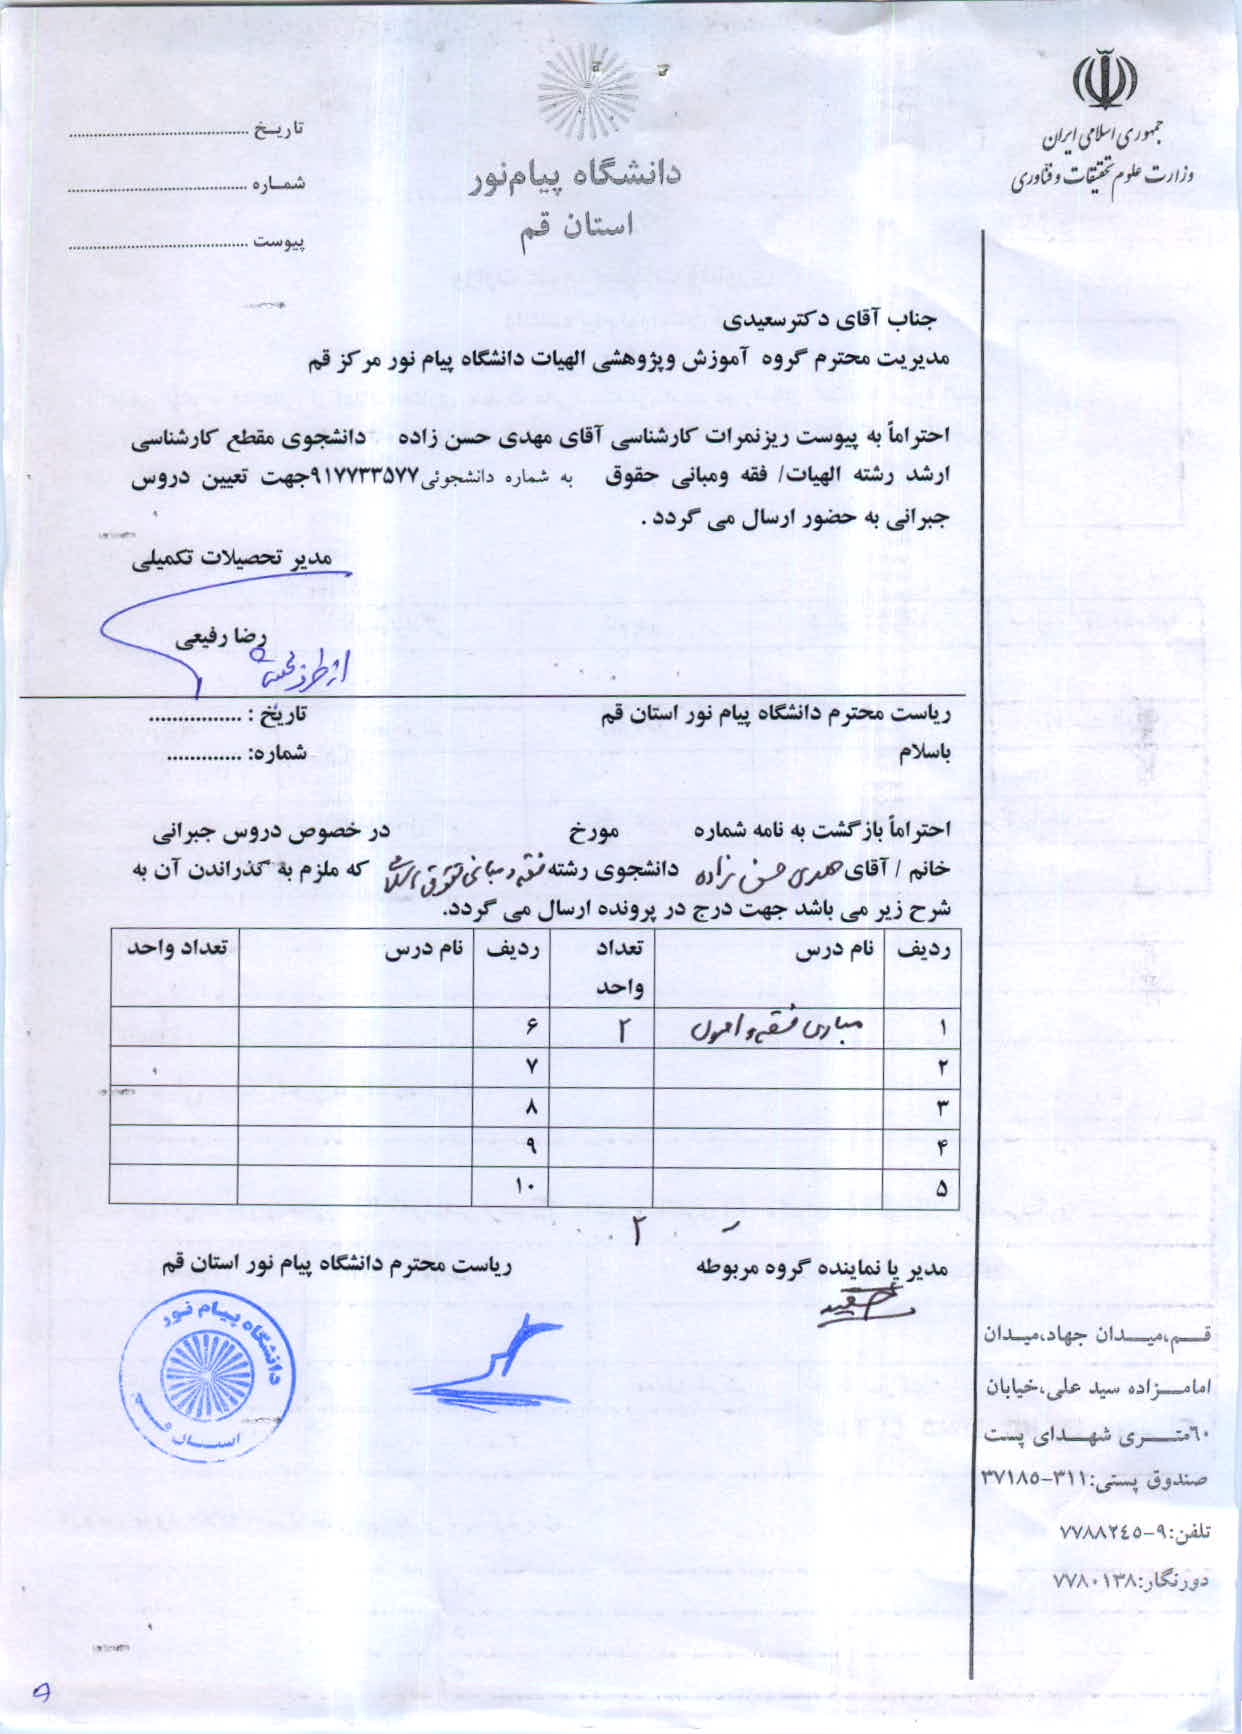 جمهوری اسلامی ایران
وزارت علوم تحقیقات و فناوری
دانشگاه پیام‌نور
استان قم
تاریخ ............
شماره ............
پیوست ............
جناب آقای دکترسعیدی
مدیریت محترم گروه آموزش وپژوهشی الهیات دانشگاه پیام نور مرکز قم
احتراماً به پیوست ریزنمرات کارشناسی آقای مهدی حسن زاده دانشجوی مقطع کارشناسی
ارشد رشته الهیات/ فقه ومبانی حقوق به شماره دانشجوئی۹۱۷۷۳۳۵۷۷جهت تعیین دروس
جبرانی به حضور ارسال می گردد .
مدیر تحصیلات تکمیلی
رضا رفیعی
از طرف
ریاست محترم دانشگاه پیام نور استان قم تاریخ : ................
باسلام شماره: .............
احتراماً بازگشت به نامه شماره مورخ در خصوص دروس جبرانی
خانم / آقای مهدی حسن زاده دانشجوی رشته فقه و مبانی حقوق اسلامی که ملزم به گذراندن آن به
شرح زیر می باشد جهت درج در پرونده ارسال می گردد.
ردیف نام درس تعداد واحد ردیف نام درس تعداد واحد
۱ مبادی فقه و اصول ۲ ۶
۲ ۷
۳ ۸
۴ ۹
۵ ۱۰
۲
مدیر یا نماینده گروه مربوطه ریاست محترم دانشگاه پیام نور استان قم
دانشگاه پیام نور
استان قم
قم،میدان جهاد،میدان
امامزاده سید علی،خیابان
۶۰متری شهدای پست
صندوق پستی:۳۱۱-۳۷۱۸۵
تلفن:۹-۷۷۸۸۲٤٥
دورنگار:۷۷۸۰۱۳۸